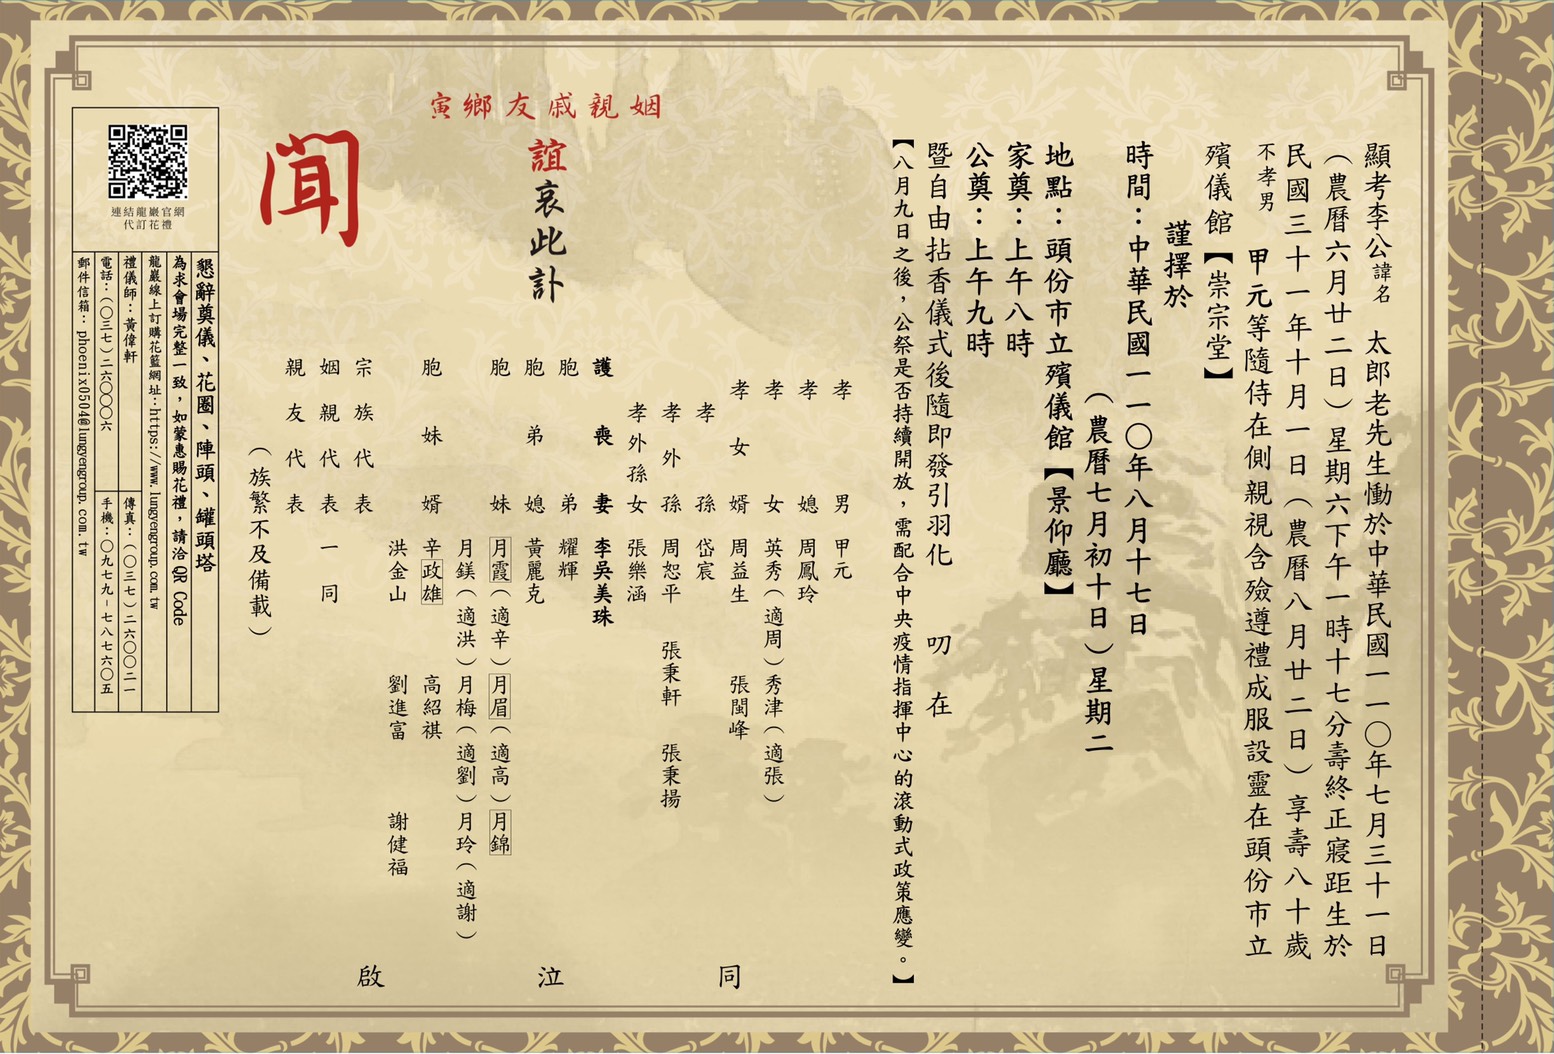 顯考李公諱名 太郎老先生慟於中華民國一一〇年七月三十一日
（農曆六月廿二日）星期六下午一時十七分壽終正寢距生於
民國三十一年十月一日（農曆八月廿二日）享壽八十歲
不孝男 甲元等隨侍在側親視含殮遵禮成服設靈在頭份市立
殯儀館【崇宗堂】
謹擇於
時間：中華民國一一〇年八月十七日
（農曆七月初十日）星期二
地點：頭份市立殯儀館【景仰廳】
家奠：上午八時
公奠：上午九時
暨自由拈香儀式後隨即發引羽化 叨 在
【八月九日之後，公祭是否持續開放，需配合中央疫情指揮中心的滾動式政策應變。】
姻親戚友鄉寅
誼哀此訃
聞
孝男 甲元
孝媳 周鳳玲
孝女 英秀（適周）秀津（適張）
孝女婿 周益生 張閩峰
孝孫 岱宸
孝外孫 周恕平 張秉軒 張秉揚
孝外孫女 張樂涵
護喪妻 李吳美珠
胞弟 耀輝
胞弟媳 黃麗克
胞妹 月霞（適辛）月眉（適高）月錦
月鎂（適洪）月梅（適劉）月玲（適謝）
胞妹婿 辛政雄 高紹祺
洪金山 劉進富 謝健福
宗族代表
姻親代表一同
親友代表
（族繁不及備載）
同泣啟
連結龍巖官網
代訂花禮
懇辭奠儀、花圈、陣頭、罐頭塔
為求會場完整一致，如蒙惠賜花禮，請洽 QR Code
龍巖線上訂購花籃網址：https://www.lungyengroup.com.tw
禮儀師：黃偉軒
傳真：（〇三七）二六〇〇二一
電話：（〇三七）二六〇〇〇六
手機：〇九七九-七八七六〇五
郵件信箱：phoenix0504@lungyengroup.com.tw